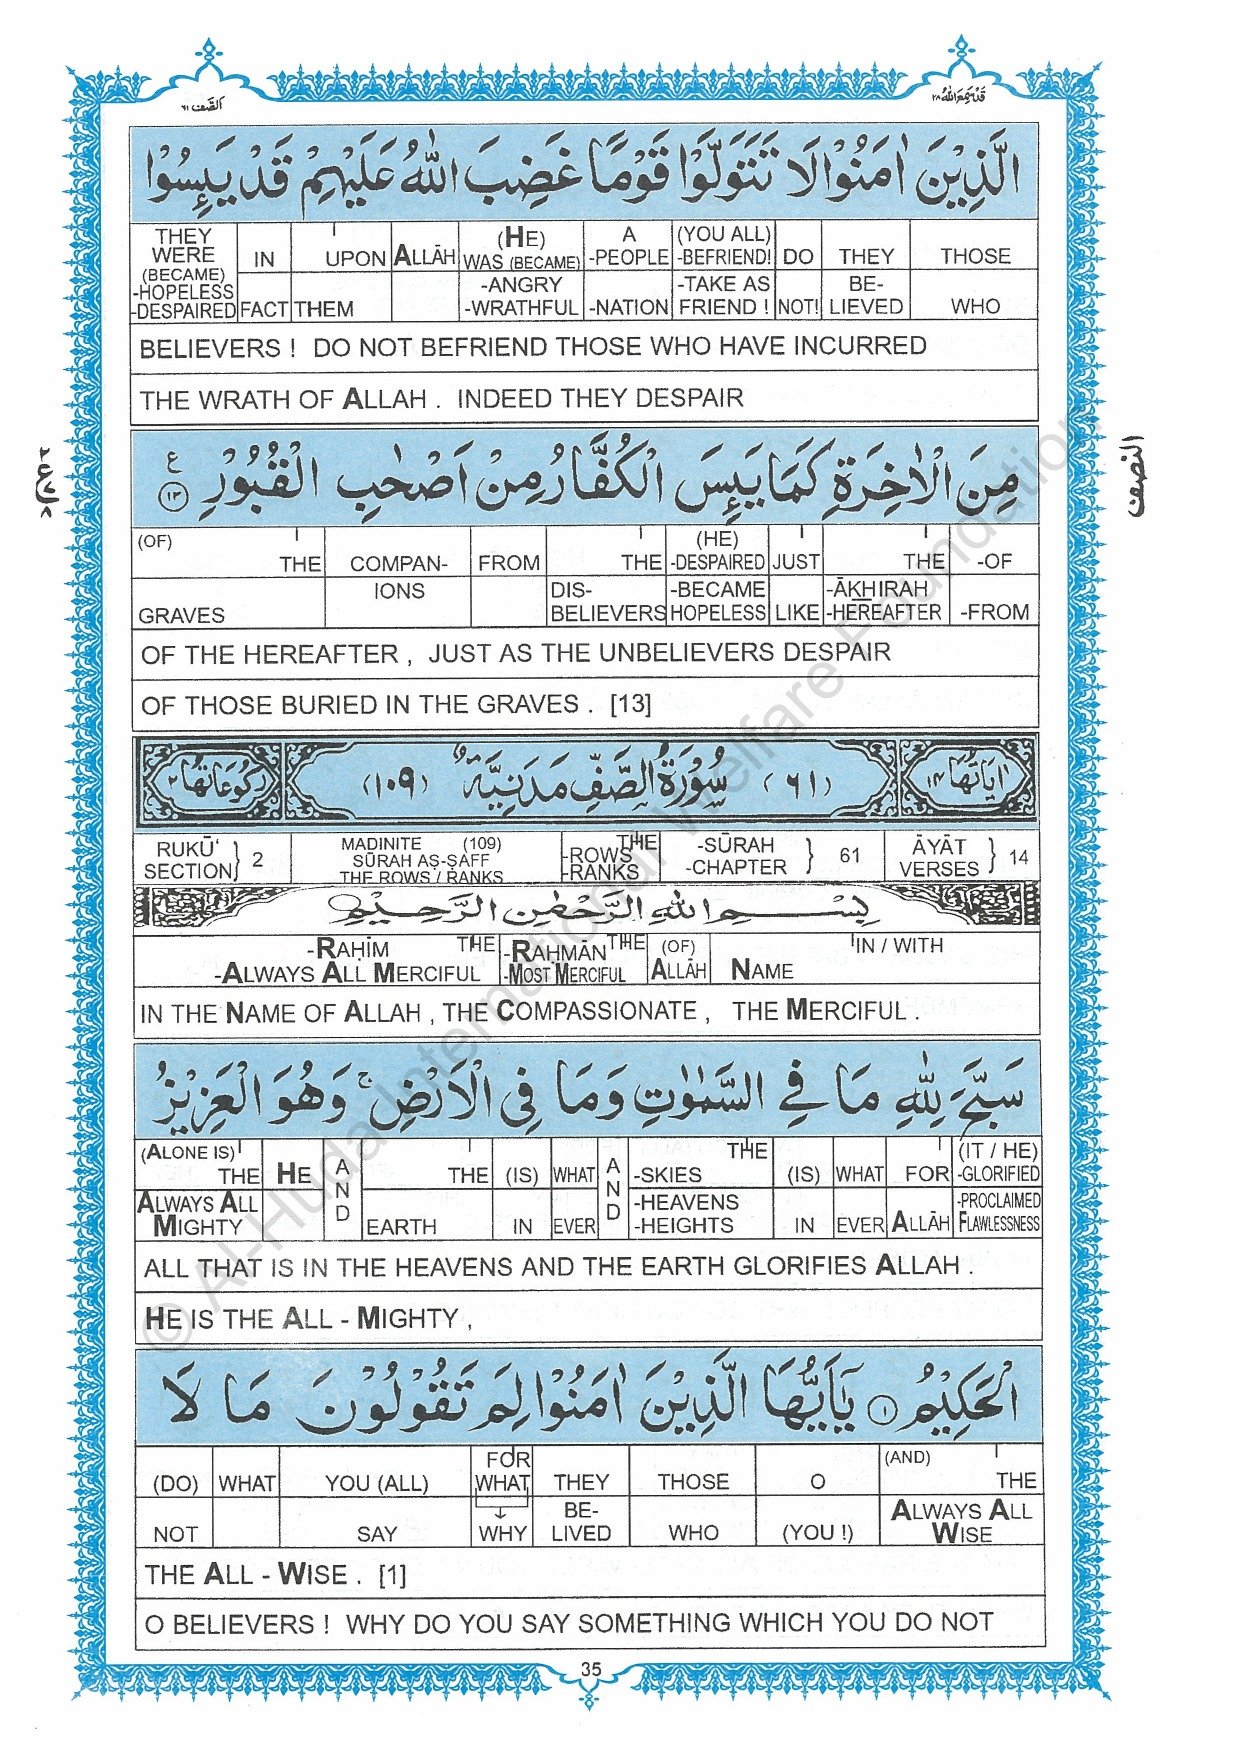 قَدْ سَمِعَ اللّٰهُ ٢٨
اَلصَّف ٦١
الَّذِيْنَ اٰمَنُوْا لَا تَتَوَلَّوْا قَوْمًا غَضِبَ اللّٰهُ عَلَيْهِمْ قَدْ يَئِسُوْا
THEY WERE (BECAME) -HOPELESS -DESPAIRED | IN FACT | UPON THEM | ALLĀH | (HE) WAS (BECAME) -ANGRY -WRATHFUL | A -PEOPLE -NATION | (YOU ALL) -BEFRIEND! -TAKE AS FRIEND ! | DO NOT! | THEY BE-LIEVED | THOSE WHO
BELIEVERS ! DO NOT BEFRIEND THOSE WHO HAVE INCURRED
THE WRATH OF ALLAH . INDEED THEY DESPAIR
النصف
مِنَ الْاٰخِرَةِ كَمَا يَئِسَ الْكُفَّارُ مِنْ اَصْحٰبِ الْقُبُوْرِ ۝١٣ ع
(OF) THE GRAVES | COMPAN-IONS | FROM | THE DIS-BELIEVERS | (HE) -DESPAIRED -BECAME HOPELESS | JUST LIKE | THE -ĀKHIRAH -HEREAFTER | -OF -FROM
OF THE HEREAFTER , JUST AS THE UNBELIEVERS DESPAIR
OF THOSE BURIED IN THE GRAVES . [13]
اٰيَاتُهَا ١٤ (٦١) سُوْرَةُ الصَّفِّ مَدَنِيَّةٌ (١٠٩) رُكُوْعَاتُهَا ٢
RUKŪ‘ SECTION } 2 | MADINITE (109) SŪRAH AṢ-ṢAFF THE ROWS / RANKS | THE -ROWS -RANKS | -SŪRAH -CHAPTER } 61 | ĀYĀT VERSES } 14
بِسْمِ اللّٰهِ الرَّحْمٰنِ الرَّحِيْمِ
THE -RAḤĪM -ALWAYS ALL MERCIFUL | THE -RAḤMĀN -MOST MERCIFUL | (OF) ALLĀH | IN / WITH NAME
IN THE NAME OF ALLAH , THE COMPASSIONATE , THE MERCIFUL .
سَبَّحَ لِلّٰهِ مَا فِي السَّمٰوٰتِ وَمَا فِي الْاَرْضِ ۚ وَهُوَ الْعَزِيْزُ
(ALONE IS) THE ALWAYS ALL MIGHTY | HE | AND | THE EARTH | (IS) IN | WHAT EVER | AND | THE -SKIES -HEAVENS -HEIGHTS | (IS) IN | WHAT EVER | FOR ALLĀH | (IT / HE) -GLORIFIED -PROCLAIMED FLAWLESSNESS
ALL THAT IS IN THE HEAVENS AND THE EARTH GLORIFIES ALLAH .
HE IS THE ALL - MIGHTY ,
الْحَكِيْمُ ۝١ يٰۤاَيُّهَا الَّذِيْنَ اٰمَنُوْا لِمَ تَقُوْلُوْنَ مَا لَا
(DO) NOT | WHAT | YOU (ALL) SAY | FOR WHAT → WHY | THEY BE-LIVED | THOSE WHO | O (YOU !) | (AND) THE ALWAYS ALL WISE
THE ALL - WISE . [1]
O BELIEVERS ! WHY DO YOU SAY SOMETHING WHICH YOU DO NOT
35
© Al-Huda International Welfare Foundation